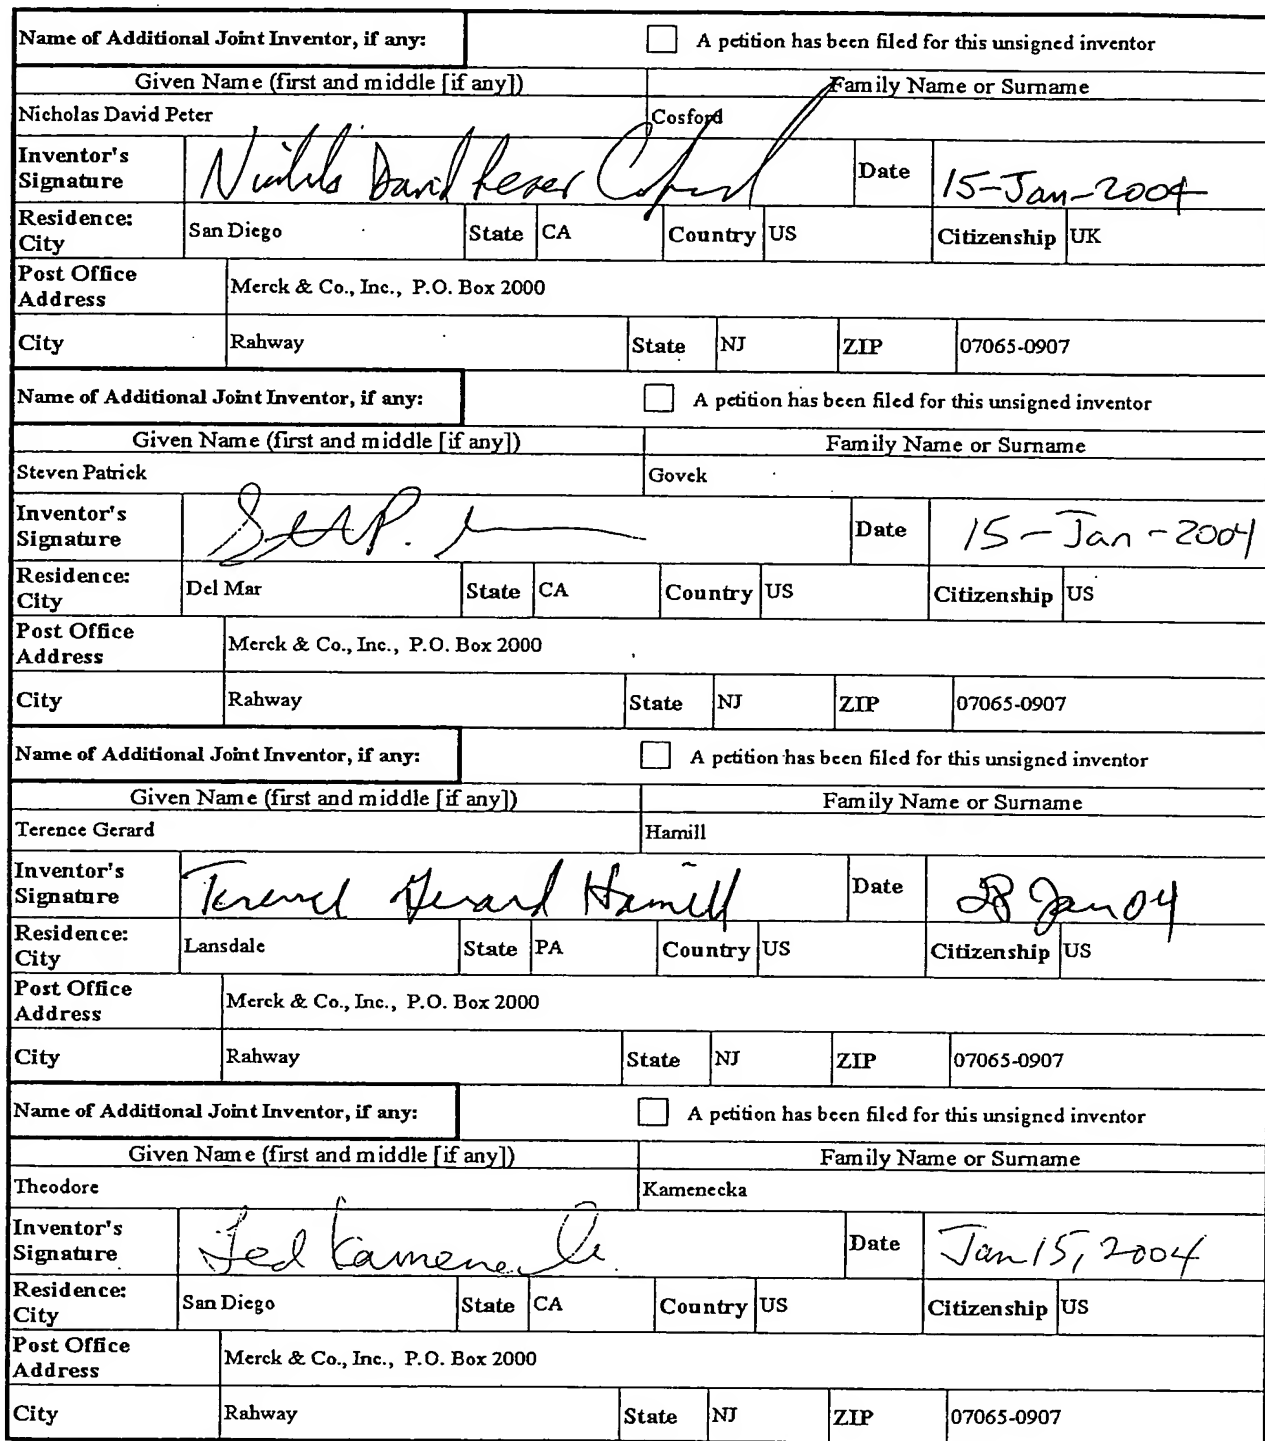 Name of Additional Joint Inventor, if any: A petition has been filed for this unsigned inventor
Given Name (first and middle [if any]) Family Name or Surname
Nicholas David Peter Cosford
Inventor's Signature Nicholas David Peter Cosford Date 15-Jan-2004
Residence: City San Diego State CA Country US Citizenship UK
Post Office Address Merck & Co., Inc., P.O. Box 2000
City Rahway State NJ ZIP 07065-0907
Name of Additional Joint Inventor, if any: A petition has been filed for this unsigned inventor
Given Name (first and middle [if any]) Family Name or Surname
Steven Patrick Govek
Inventor's Signature Date 15-Jan-2004
Residence: City Del Mar State CA Country US Citizenship US
Post Office Address Merck & Co., Inc., P.O. Box 2000
City Rahway State NJ ZIP 07065-0907
Name of Additional Joint Inventor, if any: A petition has been filed for this unsigned inventor
Given Name (first and middle [if any]) Family Name or Surname
Terence Gerard Hamill
Inventor's Signature Terence Gerard Hamill Date 28 Jan 04
Residence: City Lansdale State PA Country US Citizenship US
Post Office Address Merck & Co., Inc., P.O. Box 2000
City Rahway State NJ ZIP 07065-0907
Name of Additional Joint Inventor, if any: A petition has been filed for this unsigned inventor
Given Name (first and middle [if any]) Family Name or Surname
Theodore Kamenecka
Inventor's Signature Ted Kamenecka Date Jan 15, 2004
Residence: City San Diego State CA Country US Citizenship US
Post Office Address Merck & Co., Inc., P.O. Box 2000
City Rahway State NJ ZIP 07065-0907